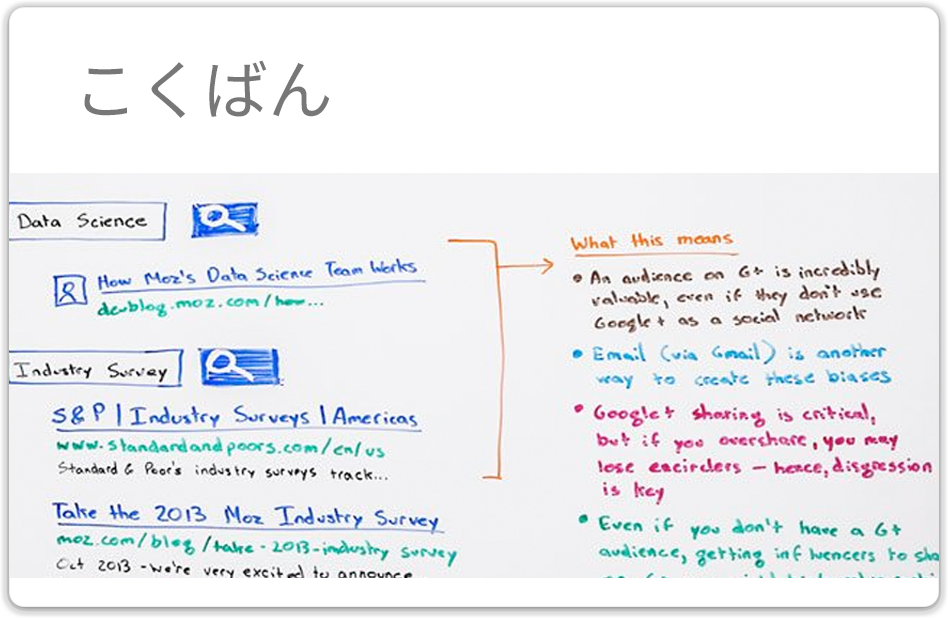 こくばん
Data Science
How Moz's Data Science Team Works
devblog.moz.com/how...
Industry Survey
S&P | Industry Surveys | Americas
www.standardandpoors.com/en/us
Standard & Poor's industry surveys track...
Take the 2013 Moz Industry Survey
moz.com/blog/take-2013-industry survey
Oct 2013 - we're very excited to announce
What this means
• An audience on G+ is incredibly
valuable, even if they don't use
Google+ as a social network
• Email (via Gmail) is another
way to create these biases
• Google+ sharing is critical,
but if you overshare, you may
lose encirclers – hence, disgression
is key
• Even if you don't have a G+
audience, getting influencers to sha